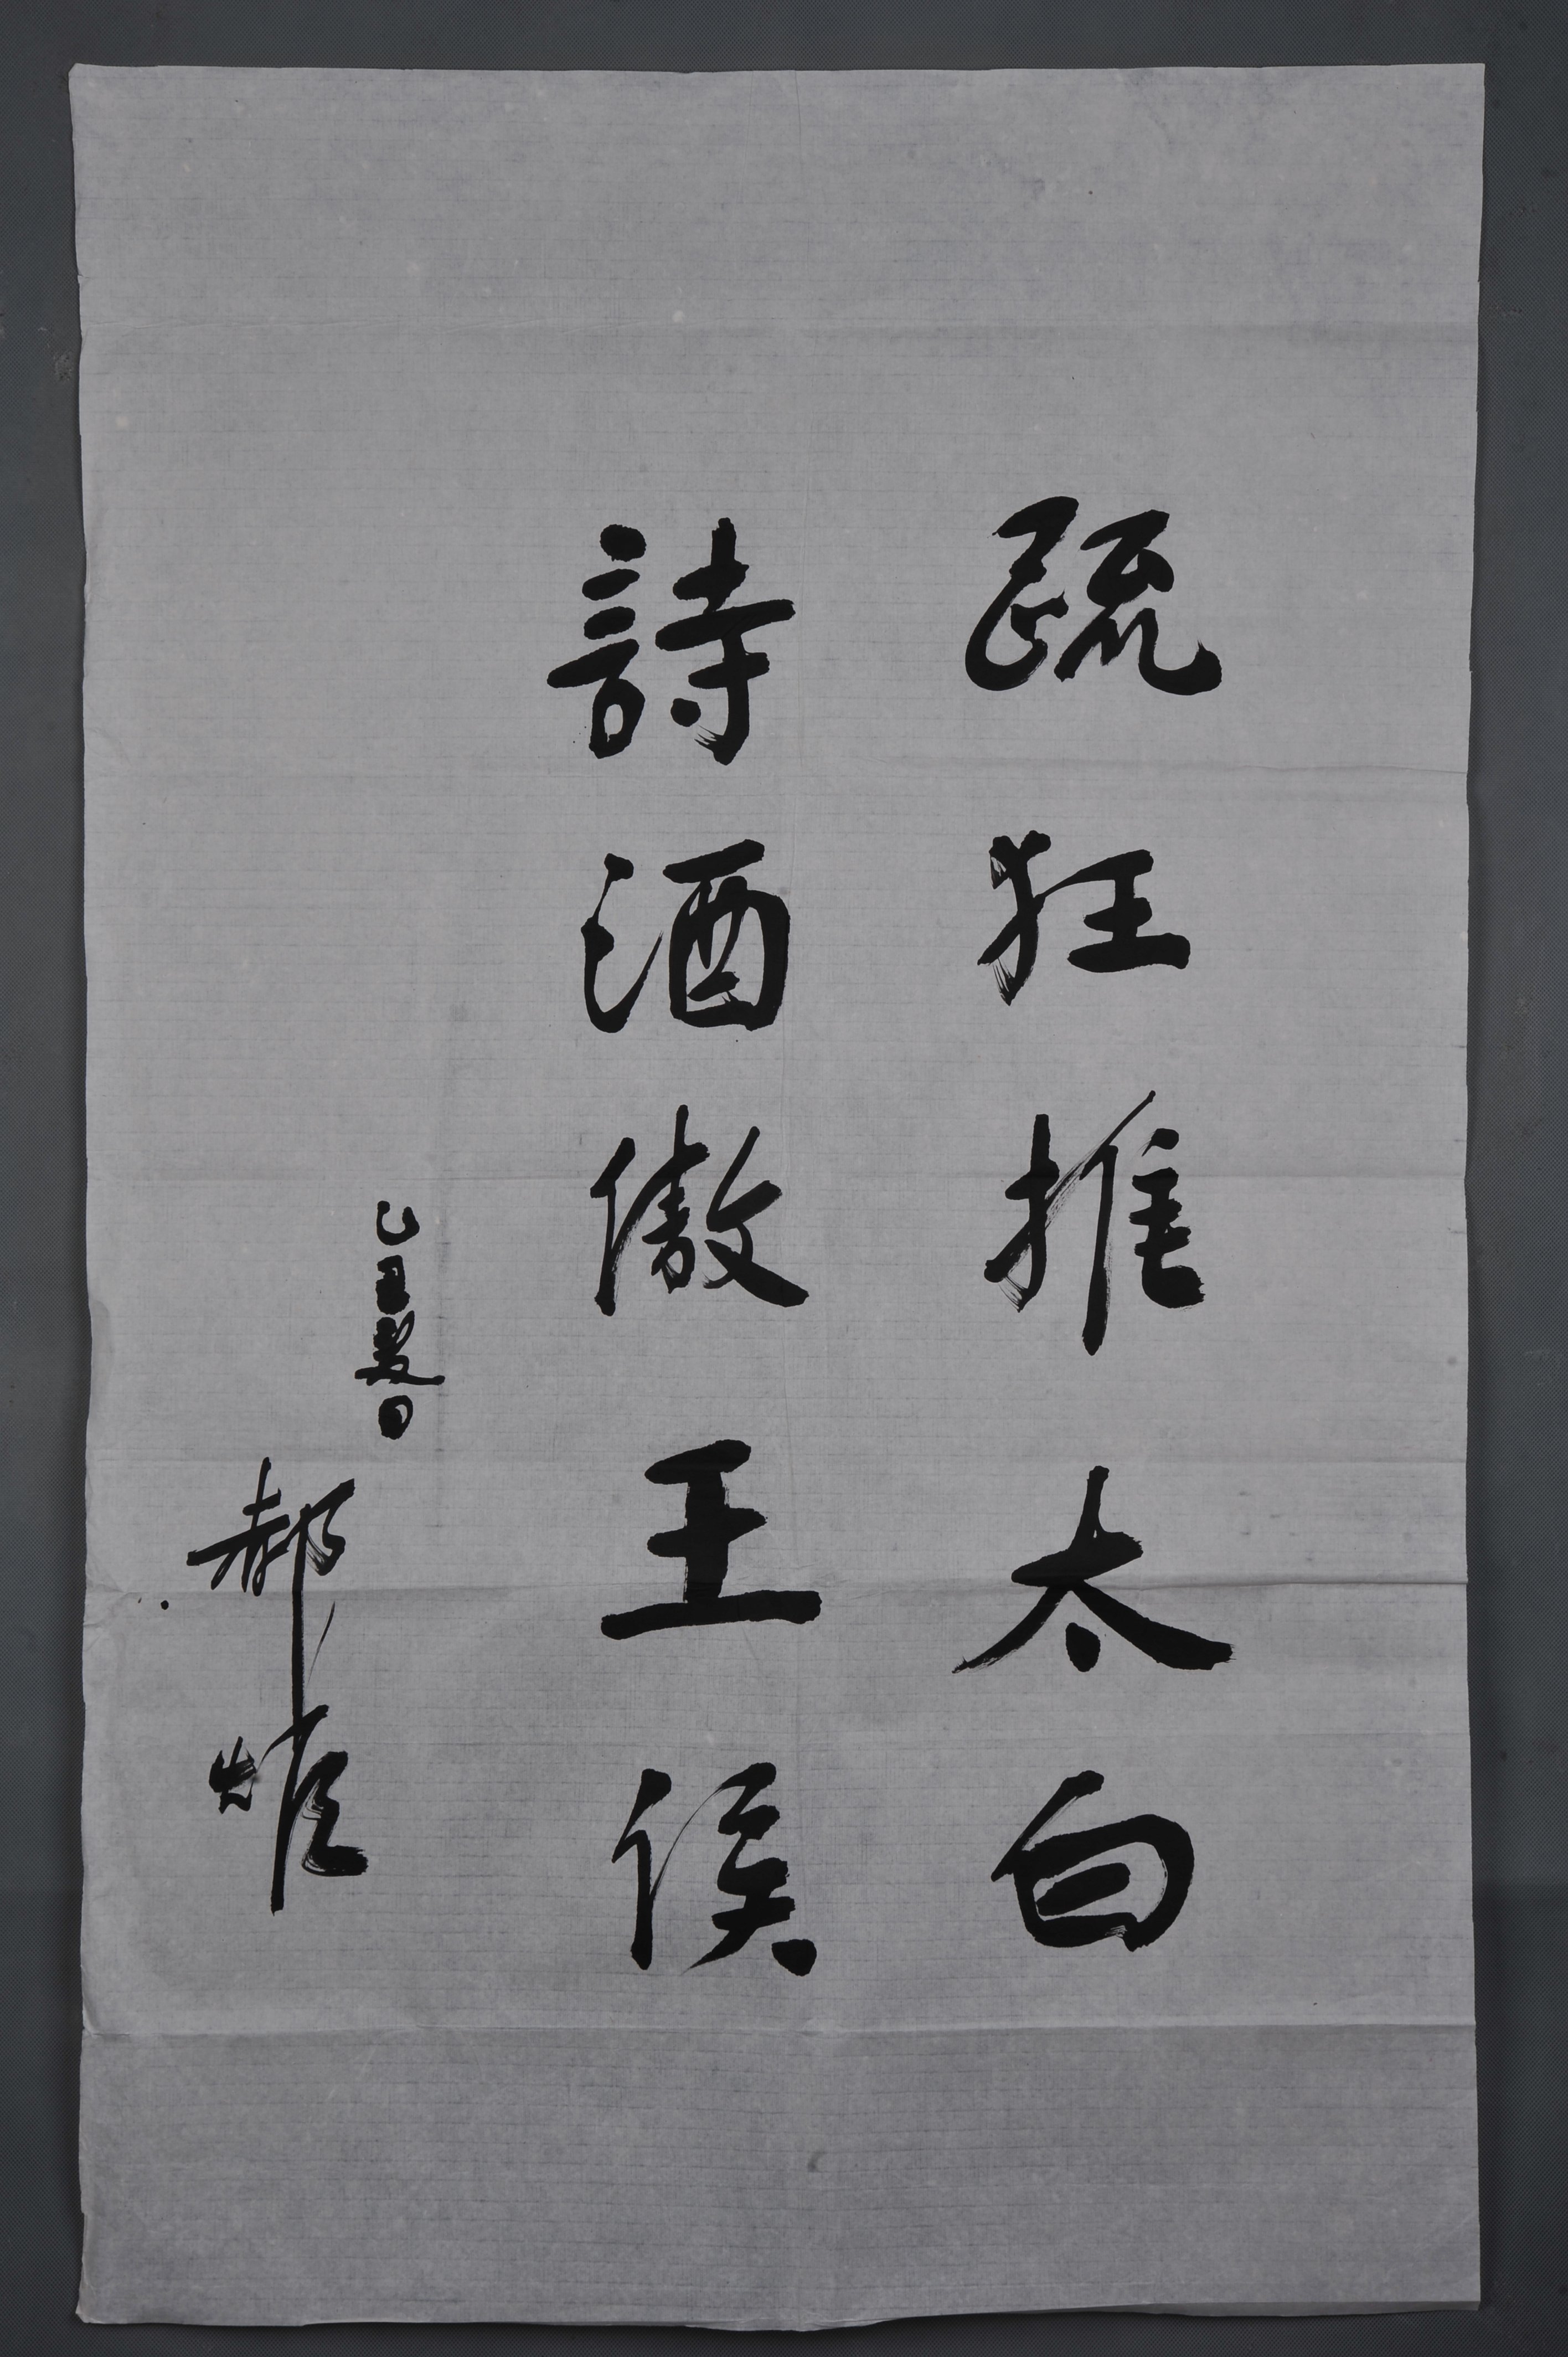 疏狂推太白
詩酒傲王侯
乙丑夏日
郝